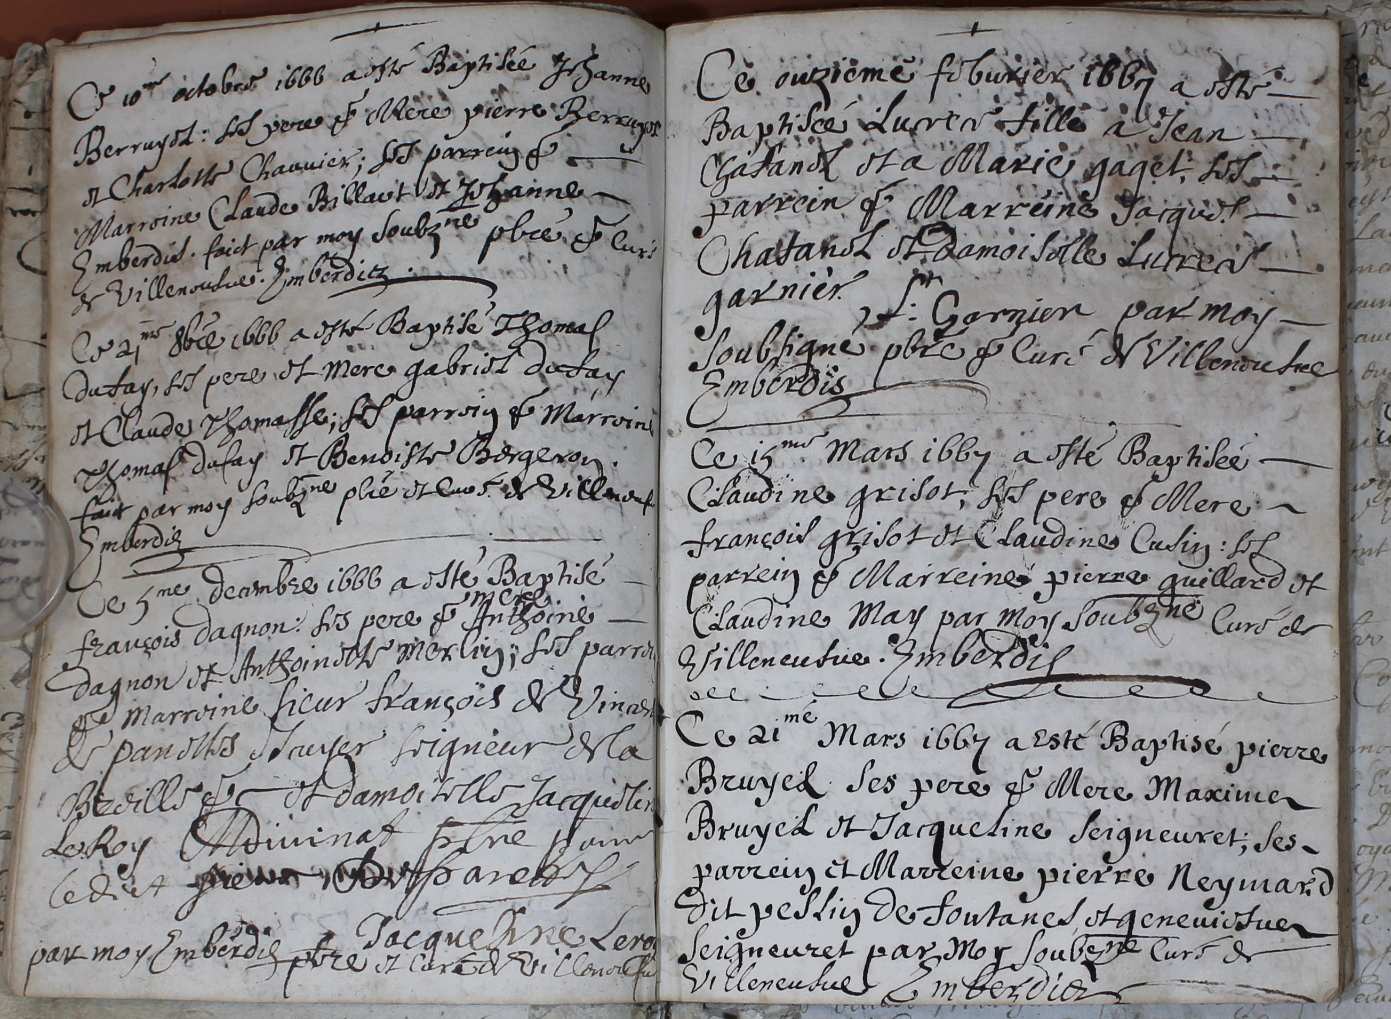 Ce 10me octobre 1666 a esté Baptisée Jehanne
Berruyer: ses pere & Mere pierre Berruyer
et Charlotte Chauvier; ses parrein &
Marreine Claude Billaut et Jehanne
Emberdis. faict par moy soubzne pbre & Curé
de Villeneufve. Emberdis
Ce 21me 8bre 1666 a esté Baptisé Thomas
dufay, ses pere et mere gabriel dufay
et Claude Thomasse; ses parrein & Marreine
Thomas dufay et Benoiste Bergeron.
fait par moy soubzne pbre et Curé de Villeneuf
Emberdis
Ce 5me decembre 1666 a esté Baptisé
françois dagnon: ses pere & mere Anthoine
dagnon et Anthoinette Merlin; ses parrein
& Marreine sieur françois de Vincent
de panettes Escuyer seigneur de la
& et damoiselle Jacqueline
LeRoy pbre pour
ledict
Jacqueline Leroy
par moy Emberdis pbre et Curé de Villeneufve
Ce ouzieme feburier 1667 a esté
Baptisée Lucresse fille a Jean
Chatanel et a Marie gaget, ses
parrein & Marreine Jacques
Chatanel et damoiselle Lucresse
garnier. Garnier par moy
soubsigné pbre & Curé de Villeneufve
Emberdis
Ce 15me Mars 1667 a esté Baptisée
Claudine grisot, ses pere & Mere
françois grisot et Claudine Cusin: ses
parrein & Marreine pierre guillard et
Claudine May par Moy soubzne Curé de
Villeneufve. Emberdis
Ce 21me Mars 1667 a Esté Baptisé pierre
Bruyel ses pere & Mere Maxime
Bruyel et Jacqueline seigneuret; ses
parrein et Marreine pierre Neymard
dit peslin de fontanes et genevieufve
seigneuret par Moy soubzne Curé de
Villeneufve Emberdis